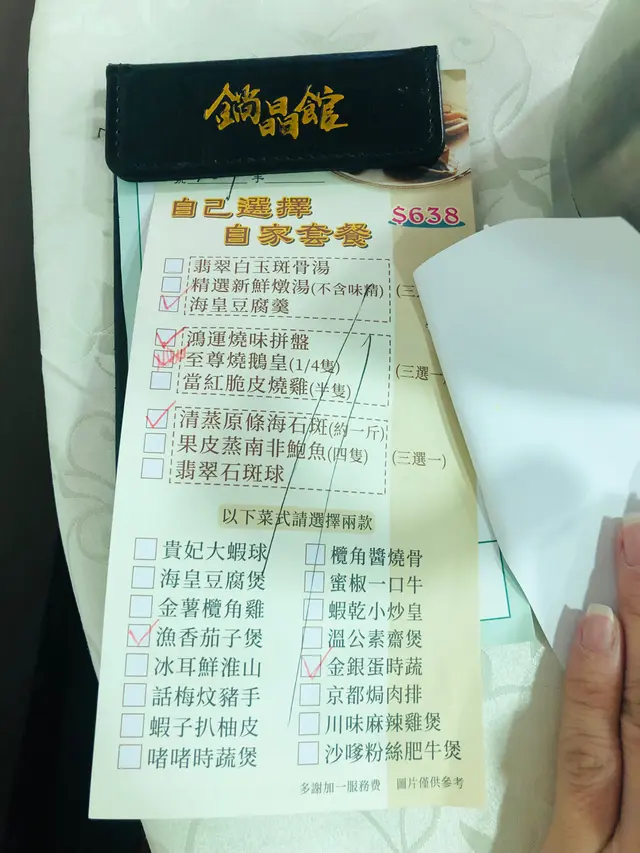 鍋晶館
自己選擇
自家套餐
$638
翡翠白玉斑骨湯
精選新鮮燉湯(不含味精)
海皇豆腐羹
(三
鴻運燒味拼盤
至尊燒鵝皇(1/4隻)
當紅脆皮燒雞(半隻)
(三選一
清蒸原條海石斑(約一斤)
果皮蒸南非鮑魚(四隻)
翡翠石斑球
(三選一)
以下菜式請選擇兩款
貴妃大蝦球
海皇豆腐煲
金薯欖角雞
漁香茄子煲
冰耳鮮淮山
話梅炆豬手
蝦子扒柚皮
啫啫時蔬煲
欖角醬燒骨
蜜椒一口牛
蝦乾小炒皇
溫公素齋煲
金銀蛋時蔬
京都焗肉排
川味麻辣雞煲
沙嗲粉絲肥牛煲
多謝加一服務費 圖片僅供參考